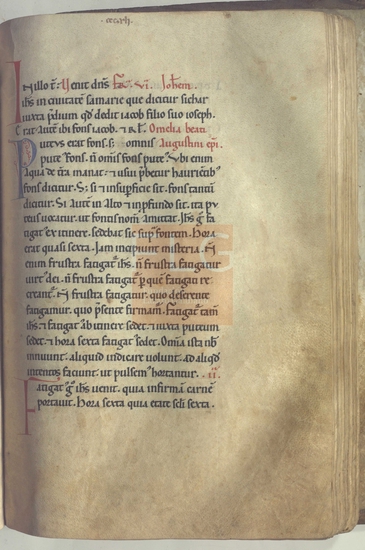 ccccxli.
In illo t̄. Venit dn̄s fr̄a. vi. Ioh̄em.
ih̄s in ciuitatē samarie que dicitur sichar
iuxta p̄dium qd̄ dedit iacob filio suo ioseph.
erat autē ibi fons iacob. ⁊ rl̄. Omelia beati
Puteus erat fons. s; omnis Augustini ep̄i.
pute' fons. n̄ om̄is fons pute'. Vbi enim
aqua de t̄ra manat. ⁊ usui p̄betur haurientib'
fons dicitur. S; si in sup̄ficie sit. fons tantū
dicitur. Si autē in alto ⁊ in p̄fundo sit. ita pu
teus uocatur. ut fontis nom̄ amittat. Ih̄s g̊ fa
tigat' ex itinere. sedebat sic sup̄ fontem. Hora
erat quasi sexta. Iam incipiunt misteria. n̄
enim frustra fatigat' ih̄s. n̄ frustra fatigatur
uirt' dei. n̄ frustra fatigat' p̄ quē fatigati re
creant'. n̄ frustra fatigatur. quo deserente
fatigamur. quo p̄sente firmam̄. Fatigat' tam̄
ih̄s ⁊ fatigat' ab itinere sedet. ⁊ iuxta puteum
sedet. ⁊ hora sexta fatigat' sedet. Om̄ia ista nob̄
innuunt. aliquid indicare uolunt. ad aliqd̄
intentos faciunt. ut pulsem' hortantur. .ii.
Fatigat' g̊ ih̄s uenit. quia infirmā carnē
portauit. Hora sexta quia etate sc̄li sexta.